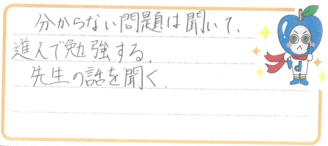 分からない問題は聞いて、
進んで勉強する。
先生の話を聞く。